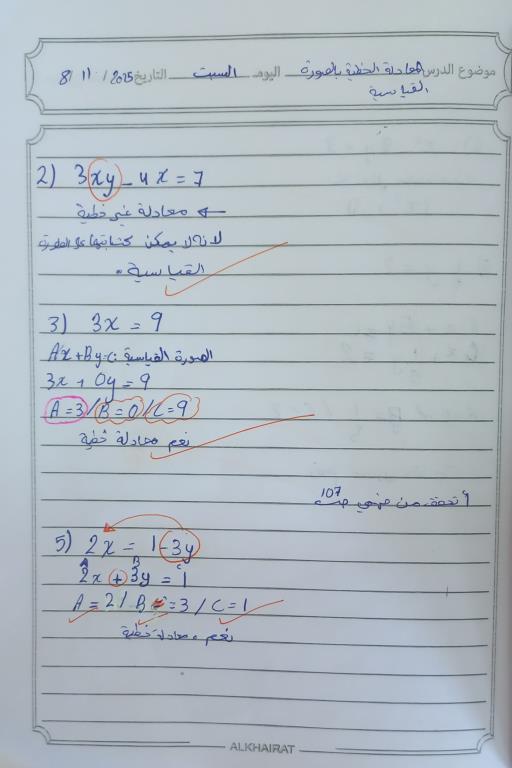 موضوع الدرس المعادلة الخطية بالصورة اليوم السبت التاريخ 8/ 11 /2025
القياسية
2) 3xy - 4x = 7
← معادلة غير خطية
لأنه لا يمكن كتابتها على الصورة
القياسية.
3) 3x = 9
الصورة القياسية: Ax + By = C
3x + 0y = 9
A = 3 / B = 0 / C = 9
نعم معادلة خطية
أتحقق من فهمي ص 107
5) 2x = 1 - 3y
A B C
2x + 3y = 1
A = 2 / B = 3 / C = 1
نعم، معادلة خطية
ALKHAIRAT